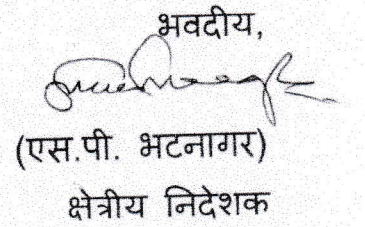 भवदीय,
(एस.पी. भटनागर)
क्षेत्रीय निदेशक